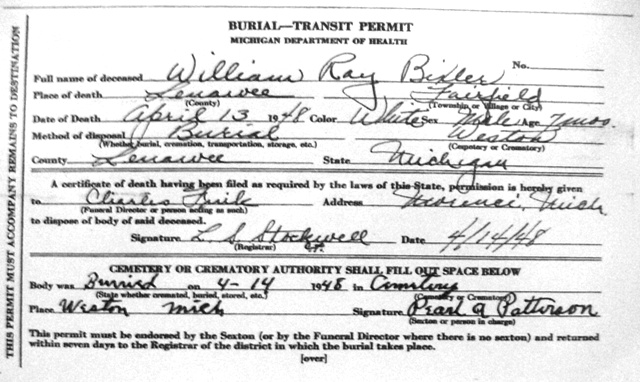 BURIAL—TRANSIT PERMIT
MICHIGAN DEPARTMENT OF HEALTH
No.
Full name of deceased William Ray Bixler
Place of death Lenawee Fairfield
(County) (Township or Village or City)
Date of Death April 13 1948 Color White Sex Male Age 7 mos.
Method of disposal Burial Weston
(Whether burial, cremation, transportation, storage, etc.) (Cemetery or Crematory)
County Lenawee State Michigan
A certificate of death having been filed as required by the laws of this State, permission is hereby given
to Charles Address Morenci, Mich.
(Funeral Director or person acting as such)
to dispose of body of said deceased.
Signature L. S. Stockwell Date 4/14/48
(Registrar)
CEMETERY OR CREMATORY AUTHORITY SHALL FILL OUT SPACE BELOW
Body was Burried on 4-14 1948 in Cemetery
(State whether cremated, buried, stored, etc.) (Cemetery or Crematory)
Place Weston Mich Signature Pearl A Patterson
(Sexton or person in charge)
This permit must be endorsed by the Sexton (or by the Funeral Director where there is no sexton) and returned
within seven days to the Registrar of the district in which the burial takes place.
[over]
THIS PERMIT MUST ACCOMPANY REMAINS TO DESTINATION